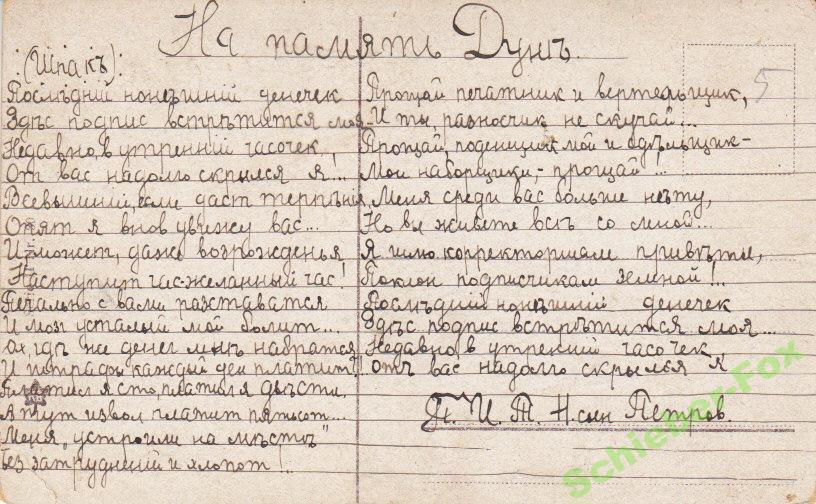 На память Дунѣ.
(Шпакъ):
Послѣдний нонешний денечек
Здѣс подпис встрѣтится моя
Недавно, в утренний часочек,
От вас надолго скрылся я...
Всевышний, если даст терпѣния,
Опят я внов увижу вас...
И может, даже возрожденья
Наступит час-желанный час!
Печально с вами разставатся
И мозг усталый мой болит...
Ах, гдѣ же денег мнѣ набратся
И штрафы каждый ден платит?!
Платился я сто, платился двѣсти,
А тут извол платит пятьсот...
Меня „устроили на мѣсто"
Без затруднений и хлопот!..
Прощай печатник и вертельщик,
И ты, разносчик не скучай...
Прощай, поденщик мой и одѣльщик-
Мои наборщики,- прощай!...
Меня среди вас больше нету,
Но вы живете всѣ со мной...
Я шлю корректоршам привѣты,
Поклон подписчикам земной!...
Послѣдний нонешний денечек
Здѣс подпис встрѣтится моя...
Недавно, в утренний часочек
отъ вас надолго скрылься я
П. И. Т. Н. сын Петров.
5
Schieber-Fox